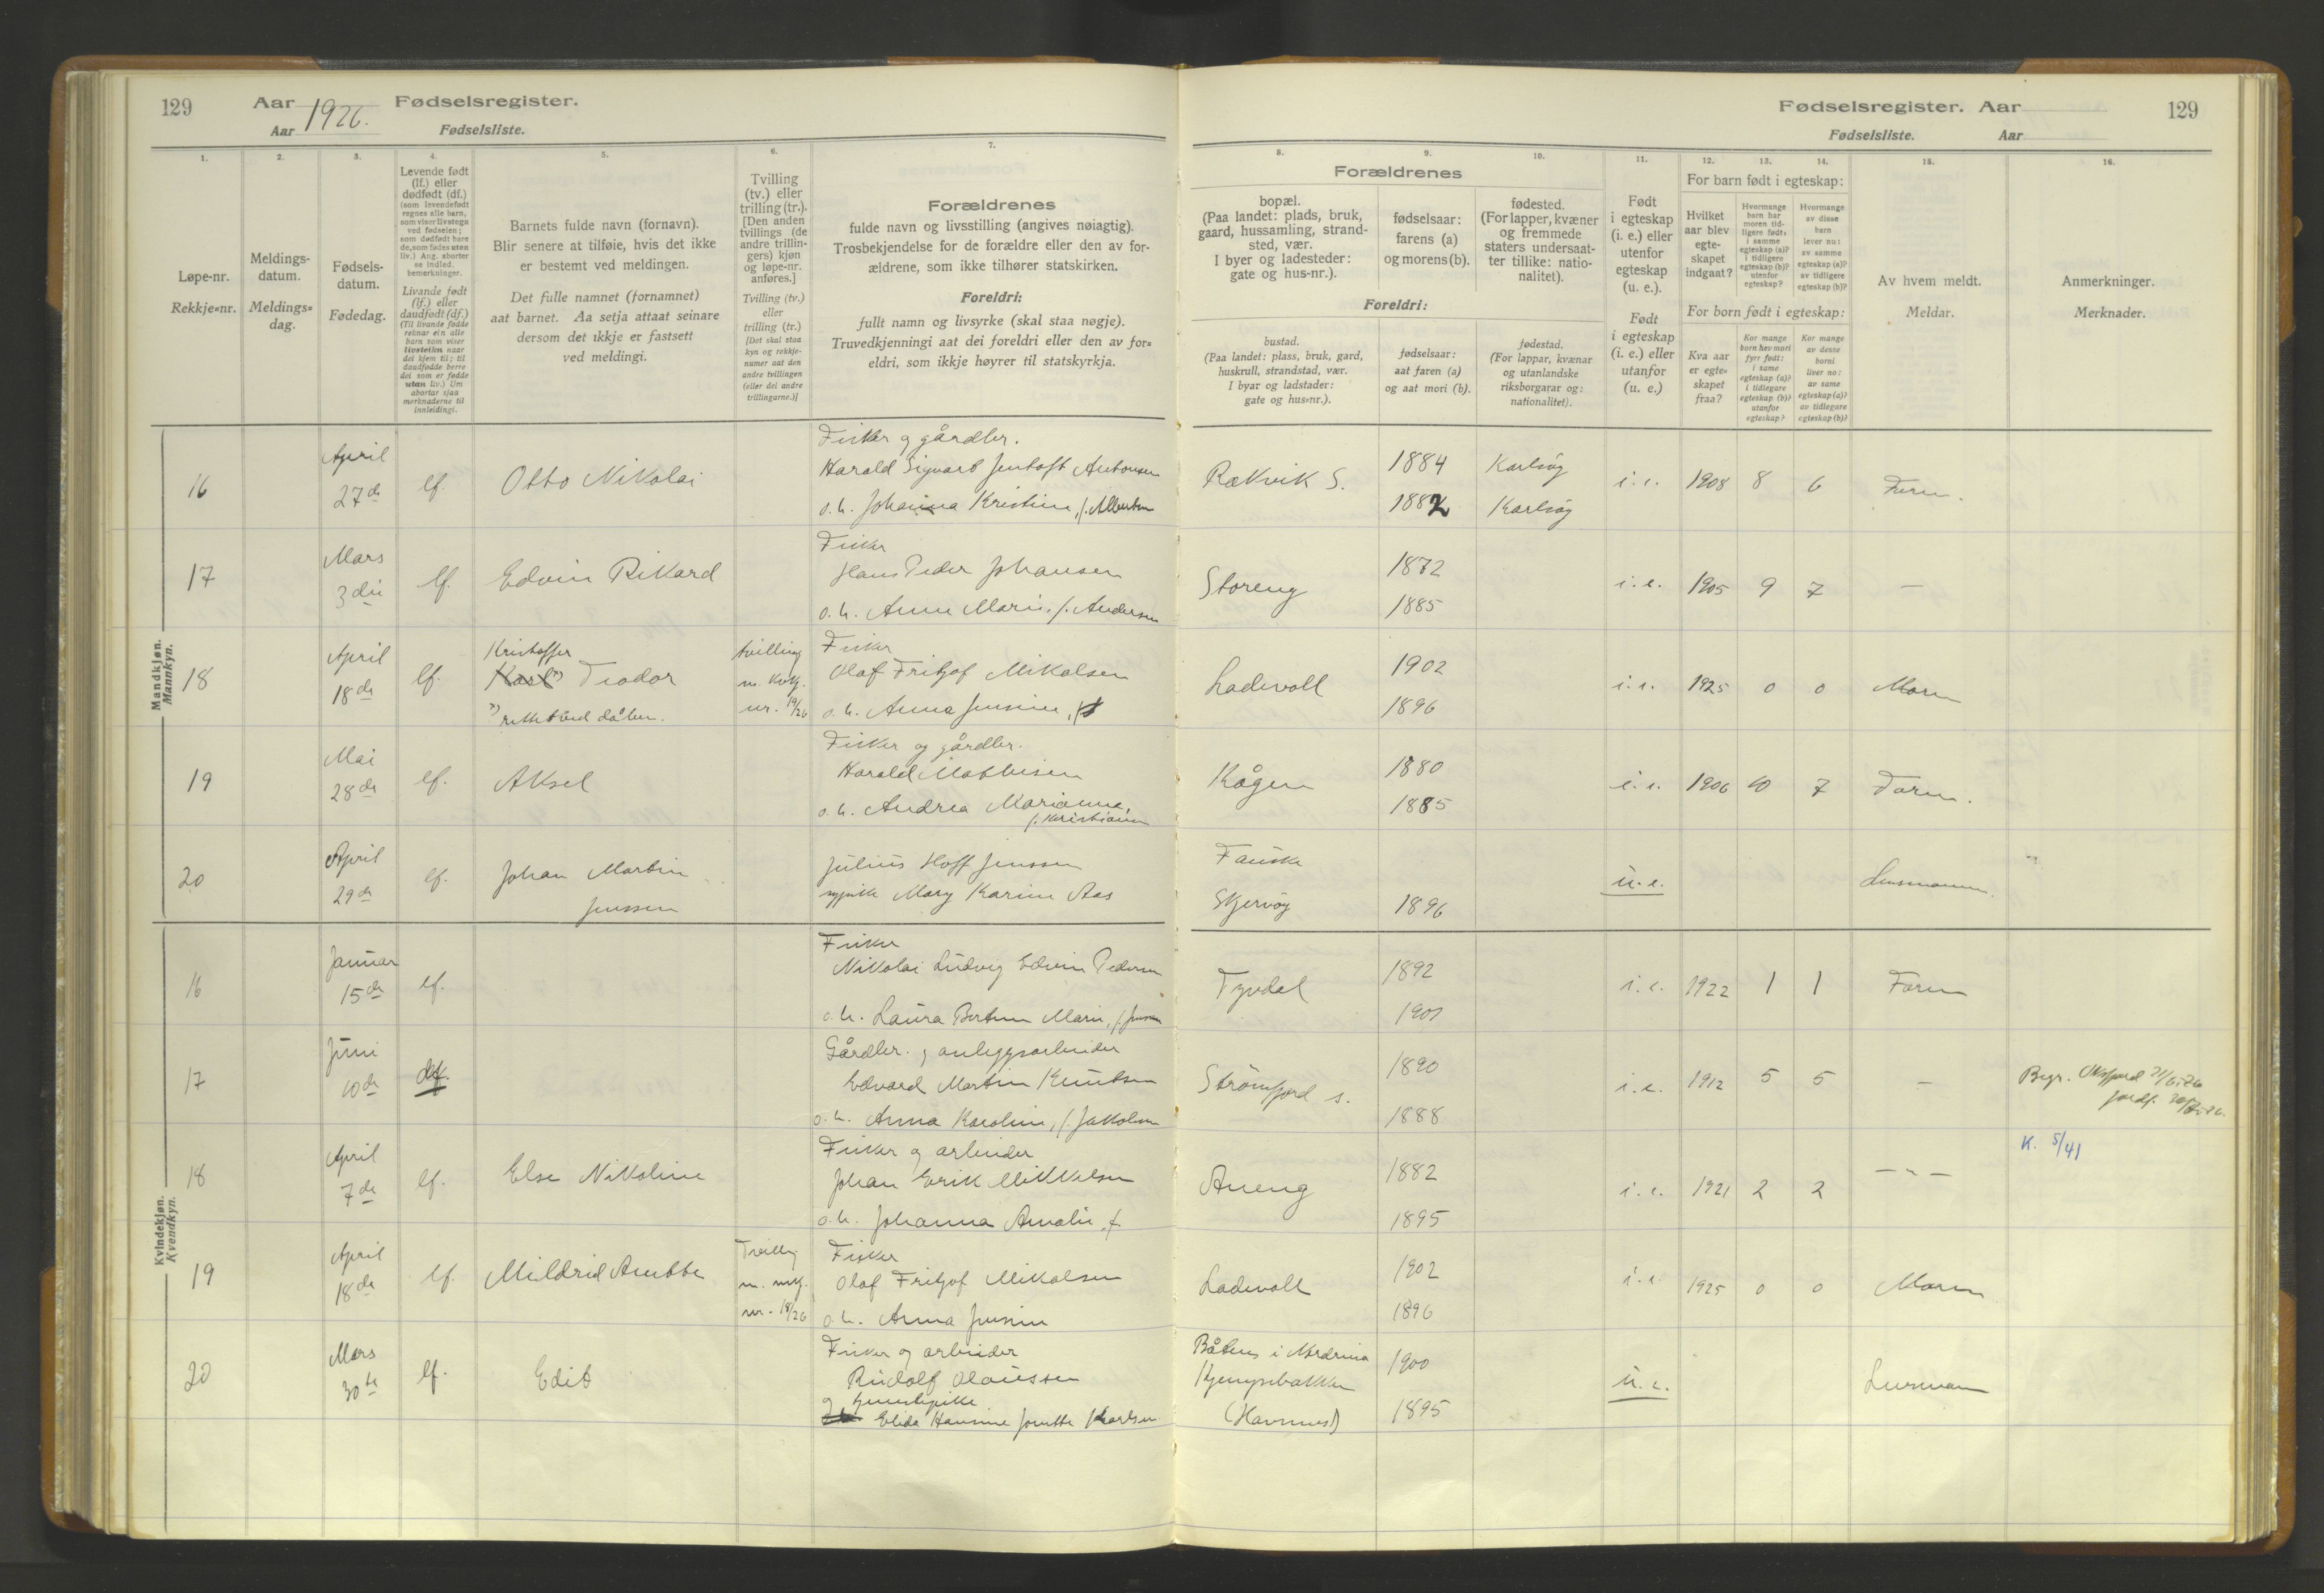 129 Aar 1926. Fødselsregister.
Aar Fødselsliste.
1. 2. 3. 4. 5. 6. 7.
Løpe-nr.
Rekkje-nr.
Meldings-
datum.
Meldings-
dag.
Fødsels-
datum.
Fødedag.
Levende født
(lf.) eller
dødfødt (df.)
(som levendefødt
regnes alle barn,
som viser livstegn
ved fødselen;
som dødfødt bare
de, som fødes uten
liv.) Ang. aborter
se indled.
bemerkninger.
Livande født
(lf.) eller
daudfødt (df.)
(Til livande fødde
reknar ein alle
barn som viser
livsteikn naar
dei kjem til; til
daudfødde berre
dei som er fødde
utan liv.) Um
abortar sjaa
merknaderne til
innleidingi.
Barnets fulde navn (fornavn).
Blir senere at tilføie, hvis det ikke
er bestemt ved meldingen.
Det fulle namnet (fornamnet)
aat barnet. Aa setja attaat seinare
dersom det ikkje er fastsett
ved meldingi.
Tvilling
(tv.) eller
trilling (tr.).
[Den anden
tvillings (de
andre trillin-
gers) kjøn
og løpe-nr.
anføres.]
Tvilling (tv.)
eller
trilling (tr.)
[Det skal staa
kyn og rekkje-
numer aat den
andre tvillingen
(eller dei andre
trillingarne.)]
Forældrenes
fulde navn og livsstilling (angives nøiagtig).
Trosbekjendelse for de forældre eller den av for-
ældrene, som ikke tilhører statskirken.
Foreldri:
fullt namn og livsyrke (skal staa nøgje).
Truvedkjenningi aat dei foreldri eller den av for-
eldri, som ikkje høyrer til statskyrkja.
Fødselsregister. Aar 129
Fødselsliste. Aar
8. 9. 10. 11. 12. 13. 14. 15. 16.
Forældrenes
bopæl.
(Paa landet: plads, bruk,
gaard, hussamling, strand-
sted, vær.
I byer og ladesteder:
gate og hus-nr.).
fødselsaar:
farens (a)
og morens (b).
fødested.
(For lapper, kvæner
og fremmede
staters undersaat-
ter tillike: natio-
nalitet).
Foreldri:
bustad.
(Paa landet: plass, bruk, gard,
huskrull, strandstad, vær.
I byar og ladstader:
gate og hus-nr.).
fødselsaar:
aat faren (a)
og aat mori (b).
fødestad.
(For lappar, kvænar
og utanlandske
riksborgarar og:
nationalitet).
Født
i egteskap
(i. e.) eller
utenfor
egteskap
(u. e.).
Født
i egteskap
(i. e.) eller
utanfor
(u. e.)
For barn født i egteskap:
Hvilket
aar blev
egte-
skapet
indgaat?
Hvormange
barn har
moren tid-
ligere født:
i samme
egteskap (a)?
i tidligere
egteskap (b)?
utenfor
egteskap?
Hvormange
av disse
barn
lever nu:
av samme
egteskap (a)?
av tidligere
egteskap (b)?
For born født i egteskap:
Kva aar
er egte-
skapet
fraa?
Kor mange
born hev mori
fyrr født:
i same
egteskap (a)?
i tidlegare
egteskap (b)?
utanfor
egteskap?
Kor mange
av desse
borni
liver no:
av same
egteskap (a)?
av tidlegare
egteskap (b)?
Av hvem meldt.
Meldar.
Anmerkninger.
Merknader.
Mandkjøn.
Mannkyn.
Fisker og gårdbr.
16 April 27de lf. Otto Nikolai Harald Sigvart Jentoft Antonsen
o.h. Johanna Kristine, f. Albertsen
Rækvik S. 1884 Karlsøy i.e. 1908 8 6 Faren.
1882 Karlsøy
Fisker
17 Mars 3die lf. Edvin Rikard Hans Peder Johansen
o.h. Anna Marie, f. Andersen
Storeng 1872 i.e. 1905 9 7 —
1885
Kristoffer Fisker
18 April 18de lf. Karl x) Teodor tvilling m. kvk. nr. 19/26 Olaf Fritjof Mikalsen
x) rettet ved dåben. o.h. Anna Jensine, f.
Ladevoll 1902 i.e. 1925 0 0 Moren
1896
Fisker og gårdbr.
19 Mai 28de lf. Aksel Harald Mathisen
o.h. Andrea Marianne,
f. Kristiansen
Kågen 1880 i.e. 1906 10 7 Faren.
1885
20 April 29de lf. Johan Martin Julius Hoff Jenssen
Jenssen sypike Mary Karine Aas
Fauske
Skjervøy 1896 u.e. Lensmannen.
Kvindekjøn.
Kvendkyn.
Fisker
16 Januar 15de lf. Nikolai Ludvig Edvin Pedersen
o.h. Laura Bertine Marie, f. Jensen
Tyvdal 1892 i.e. 1922 1 1 Faren
1901
Gårdbr. og anleggsarbeider
17 Juni 10de df. Edvard Martin Knutsen
o.h. Anna Karoline, f. Jakobsen
Strømfjord s. 1890 i.e. 1912 5 5 —
1888
Begr. Oksfjord 21/6-26
jordf.
Fisker og arbeider
18 April 7de lf. Else Nikoline Johan Erik Mikkelsen
o.h. Johanna Amalie, f.
Aneng 1882 i.e. 1921 2 2 — " —
1895
K. 5/41
Fisker
19 April 18de lf. Mildrid Anette Tvilling m. mk. nr. 18/26 Olaf Fritjof Mikalsen
o.h. Anna Jensine
Ladevoll 1902 i.e. 1925 0 0 Moren
1896
Fisker og arbeider
20 Mars 30te lf. Edit Rudolf Olaussen
og hjemmepike
Elida Hansine Jonette Karlsen
Båtnes i Nordreisa 1900 u.e. Lensmann
Kjempebakken
(Havnnes) 1895